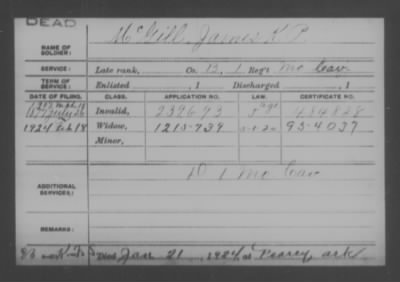 DEAD
NAME OF SOLDIER: McGill, James K P
SERVICE: Late rank, Co. B, 1 Reg't Mo Cav
TERM OF SERVICE: Enlisted , 1 Discharged , 1
DATE OF FILING. CLASS. APPLICATION NO. LAW. CERTIFICATE NO.
Invalid, 239693 484828
1924 Feb 18 Widow, 1215-739 5-1-20 95-4037
Minor,
ADDITIONAL SERVICES: D 1 Mo Cav
REMARKS:
Died Jan 21, 1924 at Pearcy, Ark